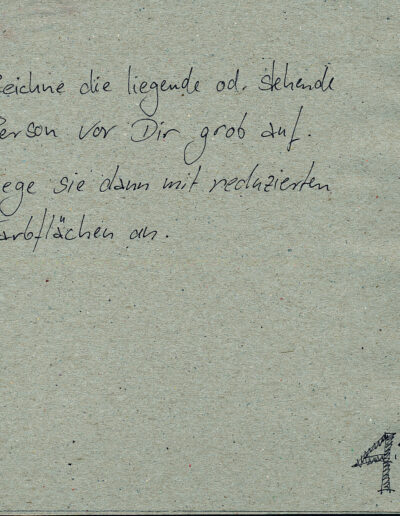 zeichne die liegende od. stehende
Person vor Dir grob auf.
Lege sie dann mit reduzierten
Farbflächen an.
4